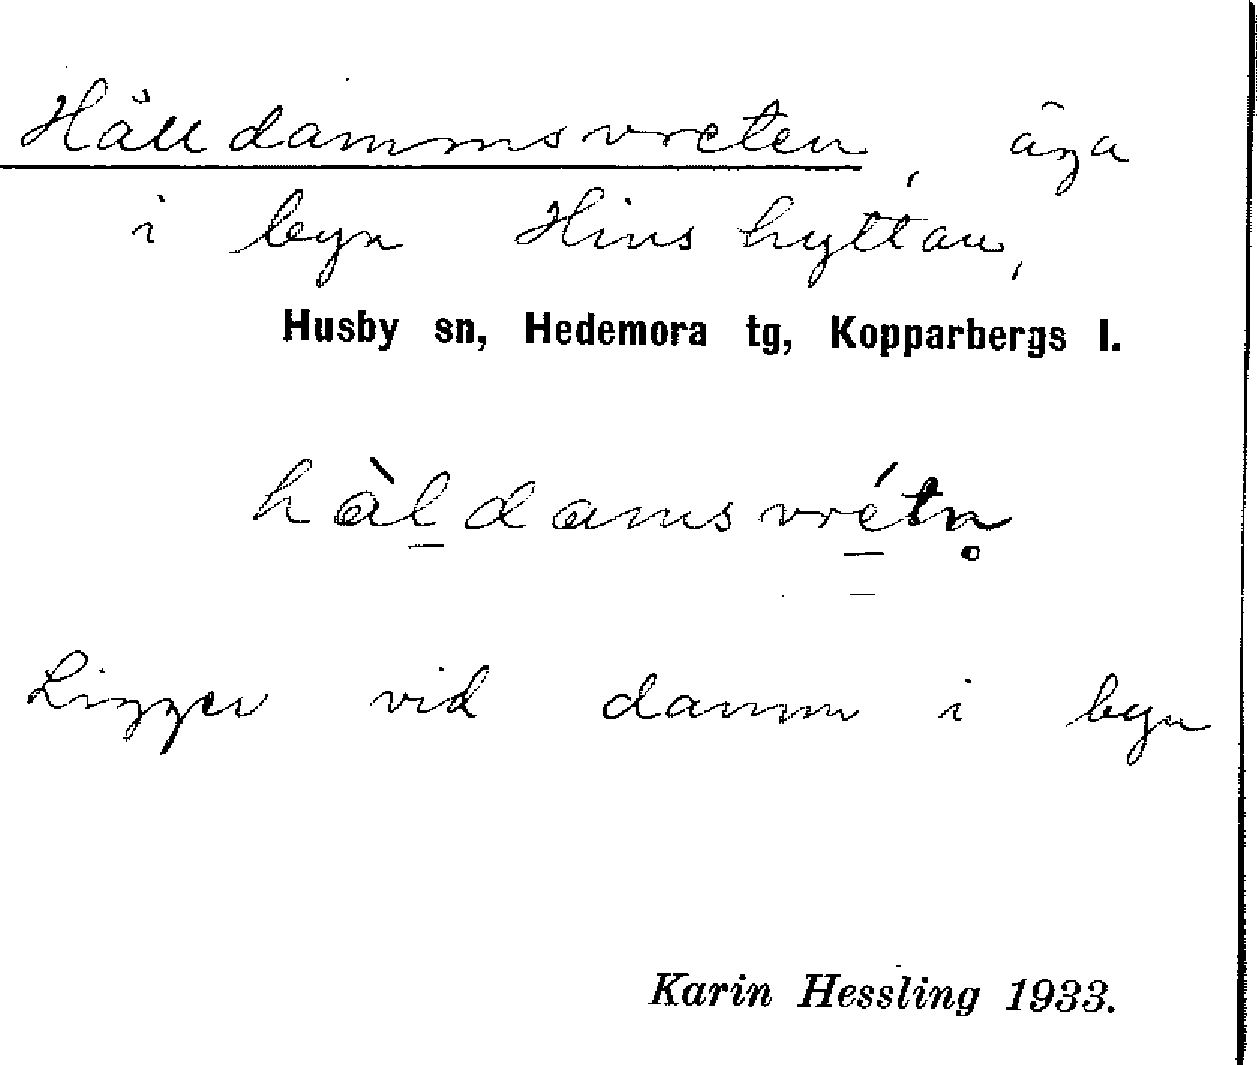 Hålldammsvreten, äga
i byn Hinshyttan,
Husby sn, Hedemora tg, Kopparbergs l.
hàl̠damsvré̠tn̥
Ligger vid damm i byn
Karin Hessling 1933.